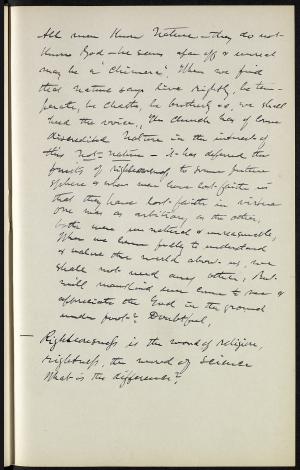 All men know Nature — they do not
know God — he seems afar off & unreal
may be a "Chimera". When we find
that nature says live rightly, be tem-
perate, be chaste, be brotherly &c. we shall
heed the voice. The Church has of course
discredited Nature in the interest of
this not-nature — it has deferred the
fruits of righteousness to some future
sphere & when men have lost faith in
that they have lost faith in virtue
One was as arbitrary as the other,
both were unnatural & unreasonable,
When we learn fully to understand
& value this world about us, we
shall not need any other, But
will mankind ever come to see &
appreciate the God in the ground
under foot? Doubtful,
Righteousness is the word of religion,
rightness, the word of science
What is the difference?